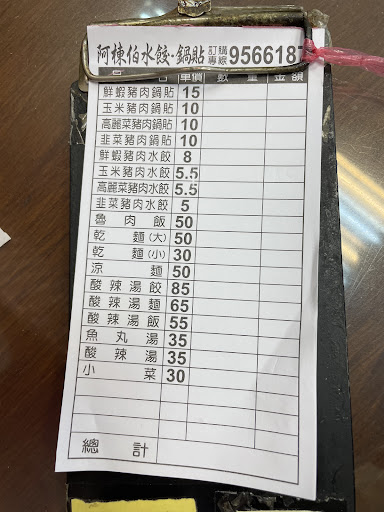 阿棟伯水餃·鍋貼 訂購專線 9566187
單價 數量 金額
鮮蝦豬肉鍋貼 15
玉米豬肉鍋貼 10
高麗菜豬肉鍋貼 10
韭菜豬肉鍋貼 10
鮮蝦豬肉水餃 8
玉米豬肉水餃 5.5
高麗菜豬肉水餃 5.5
韭菜豬肉水餃 5
魯肉飯 50
乾麵(大) 50
乾麵(小) 30
涼麵 50
酸辣湯餃 85
酸辣湯麵 65
酸辣湯飯 55
魚丸湯 35
酸辣湯 35
小菜 30
總計